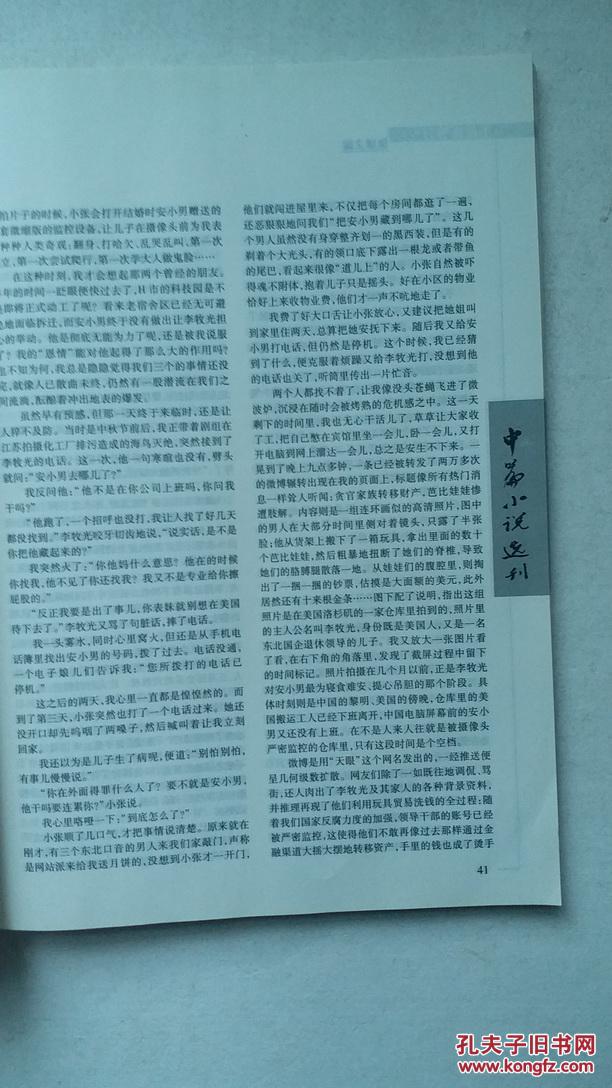 拍片子的时候，小张会打开结婚时安小男赠送的
套微缩版的监控设备，让儿子在摄像头前为我表
种种人类奇观：翻身、打哈欠、乱哭乱叫、第一次
立、第一次尝试爬行，第一次学大人做鬼脸……
在这种时刻，我才会想起那两个曾经的朋友。
年的时间一眨眼便快过去了，H市的科技园是不
是即将正式动工了呢？看来老宿舍区已经无可避
地面临拆迁，而安小男终于没有做出让李牧光担
心的举动。他是彻底无能为力了呢，还是被我说服
了？我的“恩情”能对他起得了那么大的作用吗？
也不知为何，我总是隐隐觉得我们三个的事情还没
完，就像人已散曲未终，仍然有一股潜流在我们之
间流淌，酝酿着冲出地表的爆发。
虽然早有预感，但那一天终于来临时，还是让
人猝不及防。当时是中秋节前后，我正带着剧组在
江苏拍摄化工厂排污造成的海鸟灭绝，突然接到了
李牧光的电话。这一次，他一句寒暄也没有，劈头
就问：“安小男去哪儿了？”
我反问他：“他不是在你公司上班吗，你问我
干吗？”
“他跑了，一个招呼也没打，我让人找了好几天
都没找到。”李牧光咬牙切齿地说，“说实话，是不是
你把他藏起来的？”
我突然火了：“你他妈什么意思？他在的时候
你找我，他不见了你还找我？我又不是专业给你擦
屁股的。”
“反正我要是出了事儿，你表妹就别想在美国
待下去了。”李牧光又骂了句脏话，摔了电话。
我一头雾水，同时心里窝火，但还是从手机电
话簿里找出安小男的号码，拨了过去。电话没通，
一个电子娘儿们告诉我：“您所拨打的电话已
停机。”
这之后的两天，我心里一直都是惶惶然的。而
到了第三天，小张突然也打了一个电话过来。她还
没开口却先呜咽了两嗓子，然后喊叫着让我立刻
回家。
我还以为是儿子生了病呢，便道：“别怕别怕，
有事儿慢慢说。”
“你在外面得罪什么人了？要不就是安小男，
他干吗要连累你？”小张说。
我心里咯噔一下：“到底怎么了？”
小张顺了几口气，才把事情说清楚。原来就在
刚才，有三个东北口音的男人来我们家敲门，声称
是网站派来给我送月饼的，没想到小张才一开门，
他们就闯进屋里来，不仅把每个房间都逛了一遍，
还恶狠狠地问我们“把安小男藏到哪儿了”。这几
个男人虽然没有身穿整齐划一的黑西装，但是有的
剃着个大光头，有的领口底下露出一根龙或者带鱼
的尾巴，看起来很像“道儿上”的人。小张自然被吓
得魂不附体，抱着儿子只是摇头。好在小区的物业
恰好上来收物业费，他们才一声不吭地走了。
我费了好大口舌让小张放心，又建议把她姐叫
到家里住两天，总算把她安抚下来。随后我又给安
小男打电话，但仍然是停机。这个时候，我已经猜
到了什么，便克服着烦躁又给李牧光打，没想到他
的电话也关了，听筒里传出一片忙音。
两个人都找不着了，让我像没头苍蝇飞进了微
波炉，沉浸在随时会被烤熟的危机感之中。这一天
剩下的时间里，我也无心干活儿了，草草让大家收
了工，把自己憋在宾馆里坐一会儿，卧一会儿，又打
开电脑到网上溜达一会儿，总之是安生不下来。一
晃到了晚上九点多钟，一条已经被转发了两万多次
的微博辗转出现在我的页面上，标题像所有热门消
息一样耸人听闻：贪官家族转移财产，芭比娃娃惨
遭肢解。内容则是一组连环画似的高清照片，图中
的男人在大部分时间里侧对着镜头，只露了半张
脸；他从货架上搬下了一箱玩具，拿出里面的数十
个芭比娃娃，然后粗暴地扭断了她们的脊椎，导致
她们的胳膊腿散落一地。从娃娃们的腹腔里，则掏
出了一捆一捆的钞票，估摸是大面额的美元，此外
居然还有十来根金条……图下配了说明，指出这组
照片是在美国洛杉矶的一家仓库里拍到的，照片里
的主人公名叫李牧光，身份既是美国人，又是一名
东北国企退休领导的儿子。我又放大一张图片看
了看，在右下角的角落里，发现了截屏过程中留下
的时间标记。照片拍摄在几个月以前，正是李牧光
对安小男最为寝食难安、提心吊胆的那个阶段。具
体时刻则是中国的黎明、美国的傍晚，仓库里的美
国搬运工人已经下班离开，中国电脑屏幕前的安小
男又还没有上班。在不是人来人往就是被摄像头
严密监控的仓库里，只有这段时间是个空档。
微博是用“天眼”这个网名发出的，一经推送便
呈几何级数扩散。网友们除了一如既往地调侃、骂
街，还人肉出了李牧光及其家人的各种背景资料，
并推理再现了他们利用玩具贸易洗钱的全过程；随
着我们国家反腐力度的加强，领导干部的账号已经
被严密监控，这使得他们不敢再像过去那样通过金
融渠道大摇大摆地转移资产，手里的钱也成了烫手
41
中篇小说选刊
孔夫子旧书网
www.kongfz.com